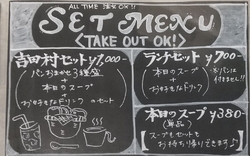 ALL TIME 注文OK!!
SET MENU
<TAKE OUT OK!>
吉田村セット ¥1,000-
パンおまかせ3種盛
+
本日のスープ
+
お好きなドリンク のセット
ランチセット ¥700-
※パンは付きません!!
本日のスープ
+
お好きなドリンク
本日のスープ ¥380-
(単品)
スープもセットも
お持ち帰りできます♪